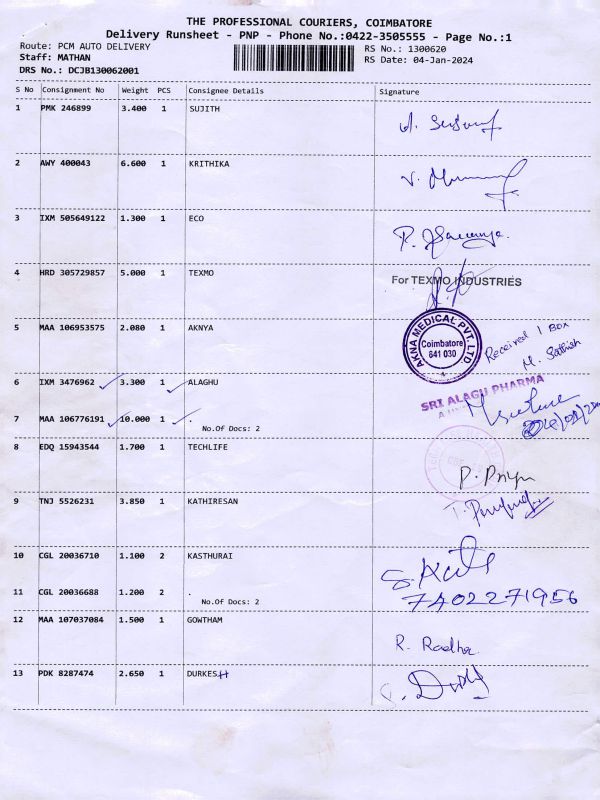 THE PROFESSIONAL COURIERS, COIMBATORE
Delivery Runsheet - PNP - Phone No.:0422-3505555 - Page No.:1
Route: PCM AUTO DELIVERY RS No.: 1300620
Staff: MATHAN RS Date: 04-Jan-2024
DRS No.: DCJB130062001
S No Consignment No Weight PCS Consignee Details Signature
1 PMK 246899 3.400 1 SUJITH
2 AWY 400043 6.600 1 KRITHIKA
3 IXM 505649122 1.300 1 ECO
4 HRD 305729857 5.000 1 TEXMO
For TEXMO INDUSTRIES
5 MAA 106953575 2.080 1 AKNYA
AKNA MEDICAL PVT. LTD
Coimbatore
641 030
Received 1 Box
M. Sathish
6 IXM 3476962 3.300 1 ALAGHU
SRI ALAGU PHARMA
7 MAA 106776191 10.000 1 .
No.Of Docs: 2
8 EDQ 15943544 1.700 1 TECHLIFE
P. Priya
9 TNJ 5526231 3.850 1 KATHIRESAN
10 CGL 20036710 1.100 2 KASTHURAI
11 CGL 20036688 1.200 2 .
7402271956
No.Of Docs: 2
12 MAA 107037084 1.500 1 GOWTHAM
R. Radha
13 PDK 8287474 2.650 1 DURKESH